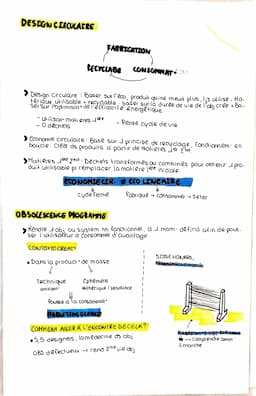 DESIGN CIRCULAIRE
FABRICATION
RECYCLABLE CONSOMMAT°
Design circulaire : Baser sur l'éco, produit qui ne meurt plus, ils utilisé. Ma-
tériaux utilisable + recyclable. baser sur la durée de vie de l'obj créé + Ba-
ser sur l'optimisat° de l'efficacité énergétique.
- utiliser matières 1ère - Pense cycle de vie
- 0 déchets
Economie circulaire : Basé sur 1 principe de recyclage, fonctionnem. en
boucle. Créa° de produits à partir de matières
Matières 1ère 2nd : Déchets transformés ou combinés pour obtenir 1 pro-
duit utilisable pr remplacer la matière 1ère initiale.
ECONOMIE CIR. ≠ ECO LINEAIRE
Cycle fermé Fabriqué → Consommé → Jeter
OBSOLESCENCE PROGRAMMÉ
Rendre 1 obj ou system non fonctionnel, à 1 mom° défini afin de pous-
ser l'utilisateur à consommer d'avantage
Dans la product° de masse
Technique Ephémère
Esthétique / tendance
Pousse à la consommat°
COMMENT ALLER À L'ENCONTRE DE CELA ?
5.5 designers, la médecine ds obj
OBJ défectueux → rend 2nd vie obj
→ Comprendre comm°
il marche